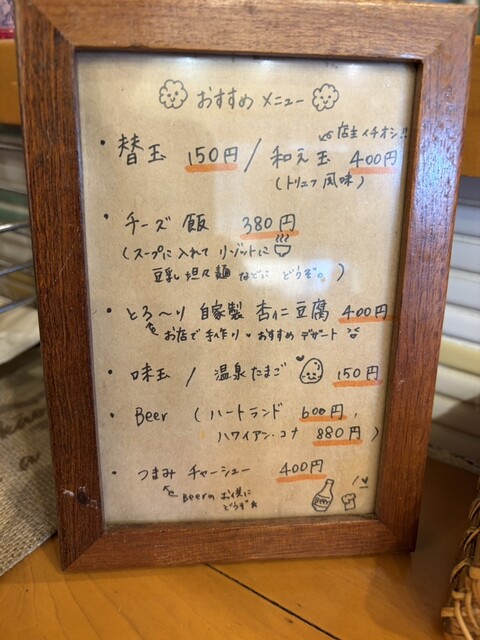 おすすめ メニュー
店主イチオシ!!
・替玉 150円 / 和え玉 400円
(トリュフ風味)
・チーズ飯 380円
(スープに入れて リゾットに
豆乳坦々麺 などに どうぞ。)
・とろ〜り 自家製 杏仁豆腐 400円
お店で手作り♥おすすめ デザート
・味玉 / 温泉たまご 150円
・Beer (ハートランド 600円,
ハワイアン・コナ 880円)
・つまみ チャーシュー 400円
Beerの お供に
どうぞ☆